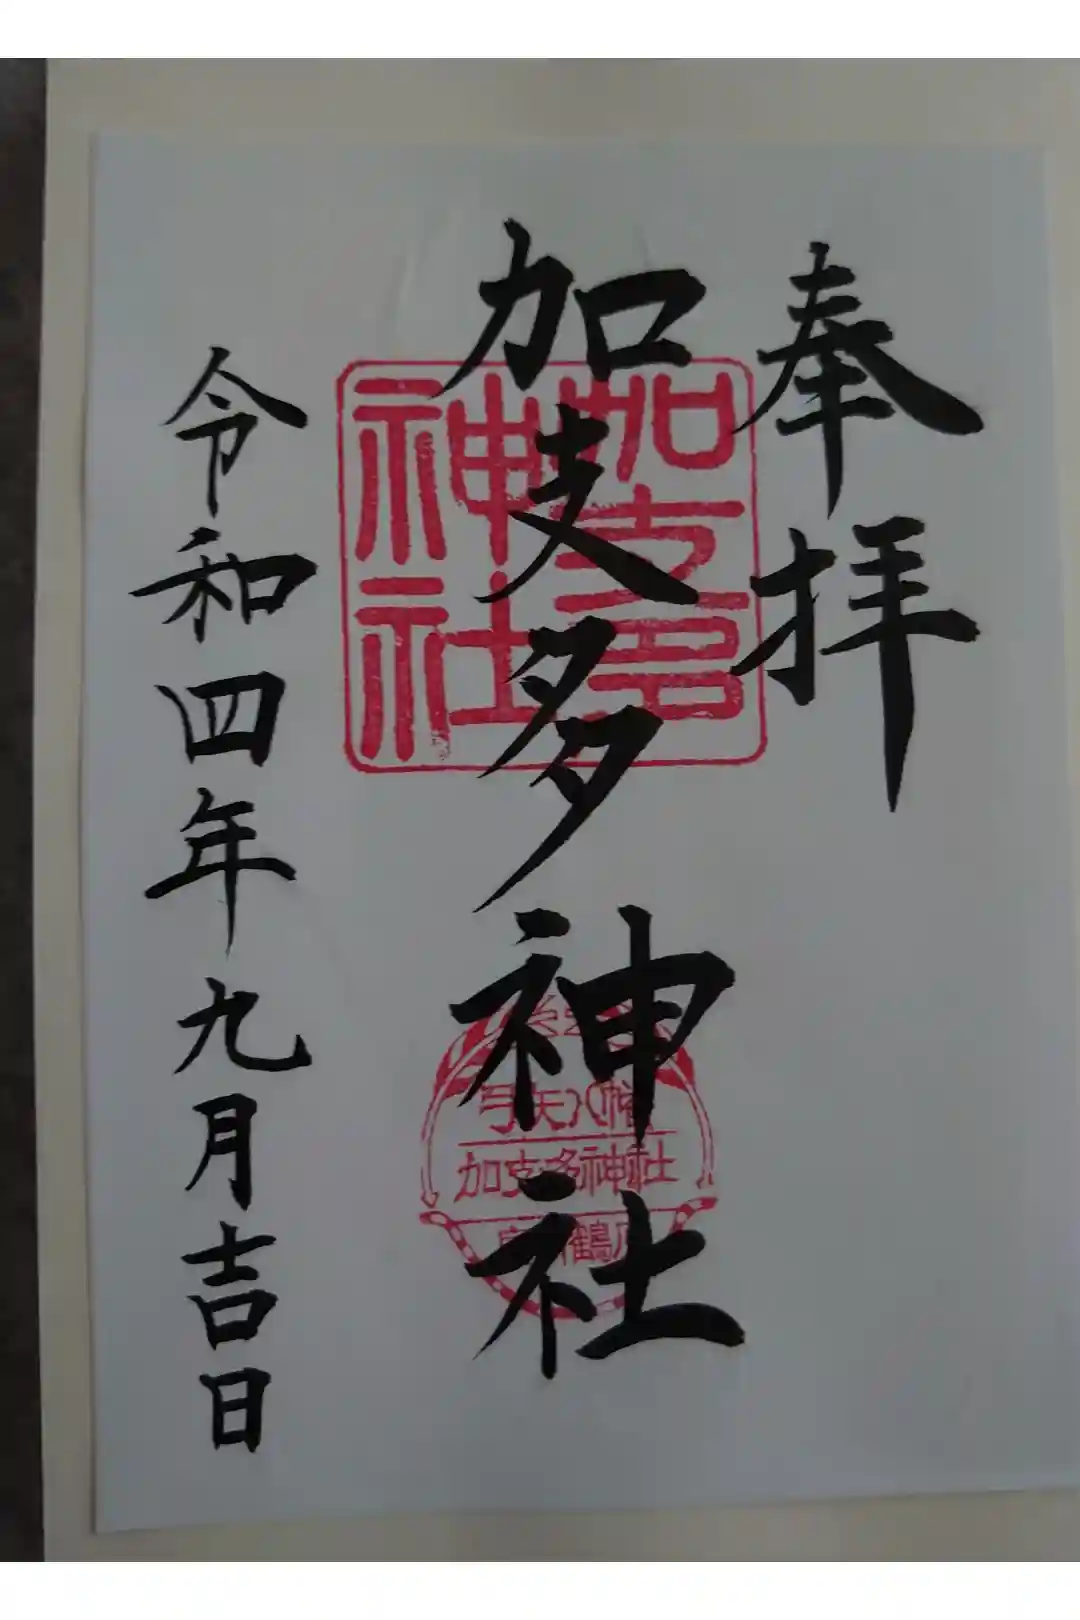 奉拝
加支多神社
令和四年九月吉日
加支多
神社
弓矢八幡
加支多神社
鶴